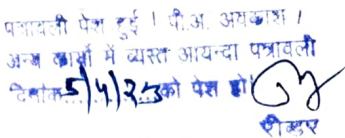 पत्रावली पेश हुई । पी.अ. अवकाश ।
अन्य कार्यो में व्यस्त आयन्दा पत्रावली
दिनांक 5/4/23 को पेश हो
रीडर